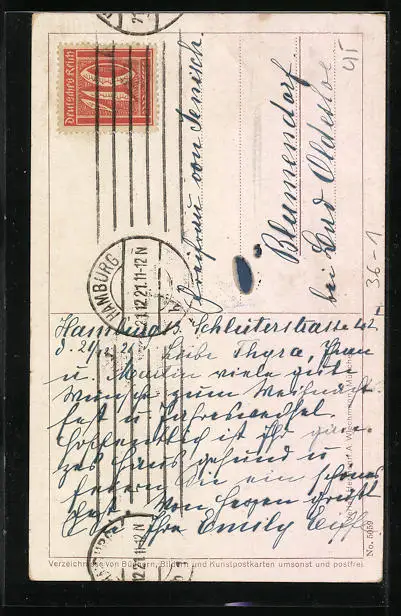 Deutsches Reich
40
HAMBURG
21.12.21.11-12 N
Freifrau von Jenisch
Blumendorf
bei Bad Oldesloe
Hamburg Schlüterstrasse
d. 21/12 21. Liebe Thyra, Ihnen
u. Martin viele gute
Wünsche zum Weihnachts
fest u. Jahreswechsel.
Hoffentlich ist Ihr gan-
zes Haus gesund u
feiern Sie ein schönes
Fest. Von Herzen grüßt
Sie Ihre Emily
21.12.21.11-12 N
Verzeichnisse von Büchern, Bildern und Kunstpostkarten umsonst und postfrei.
No. 5959
36-1